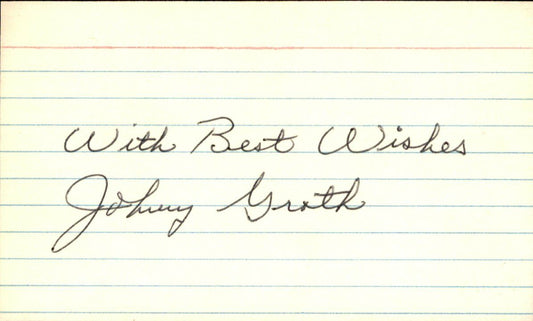 With Best Wishes
Johnny Groth